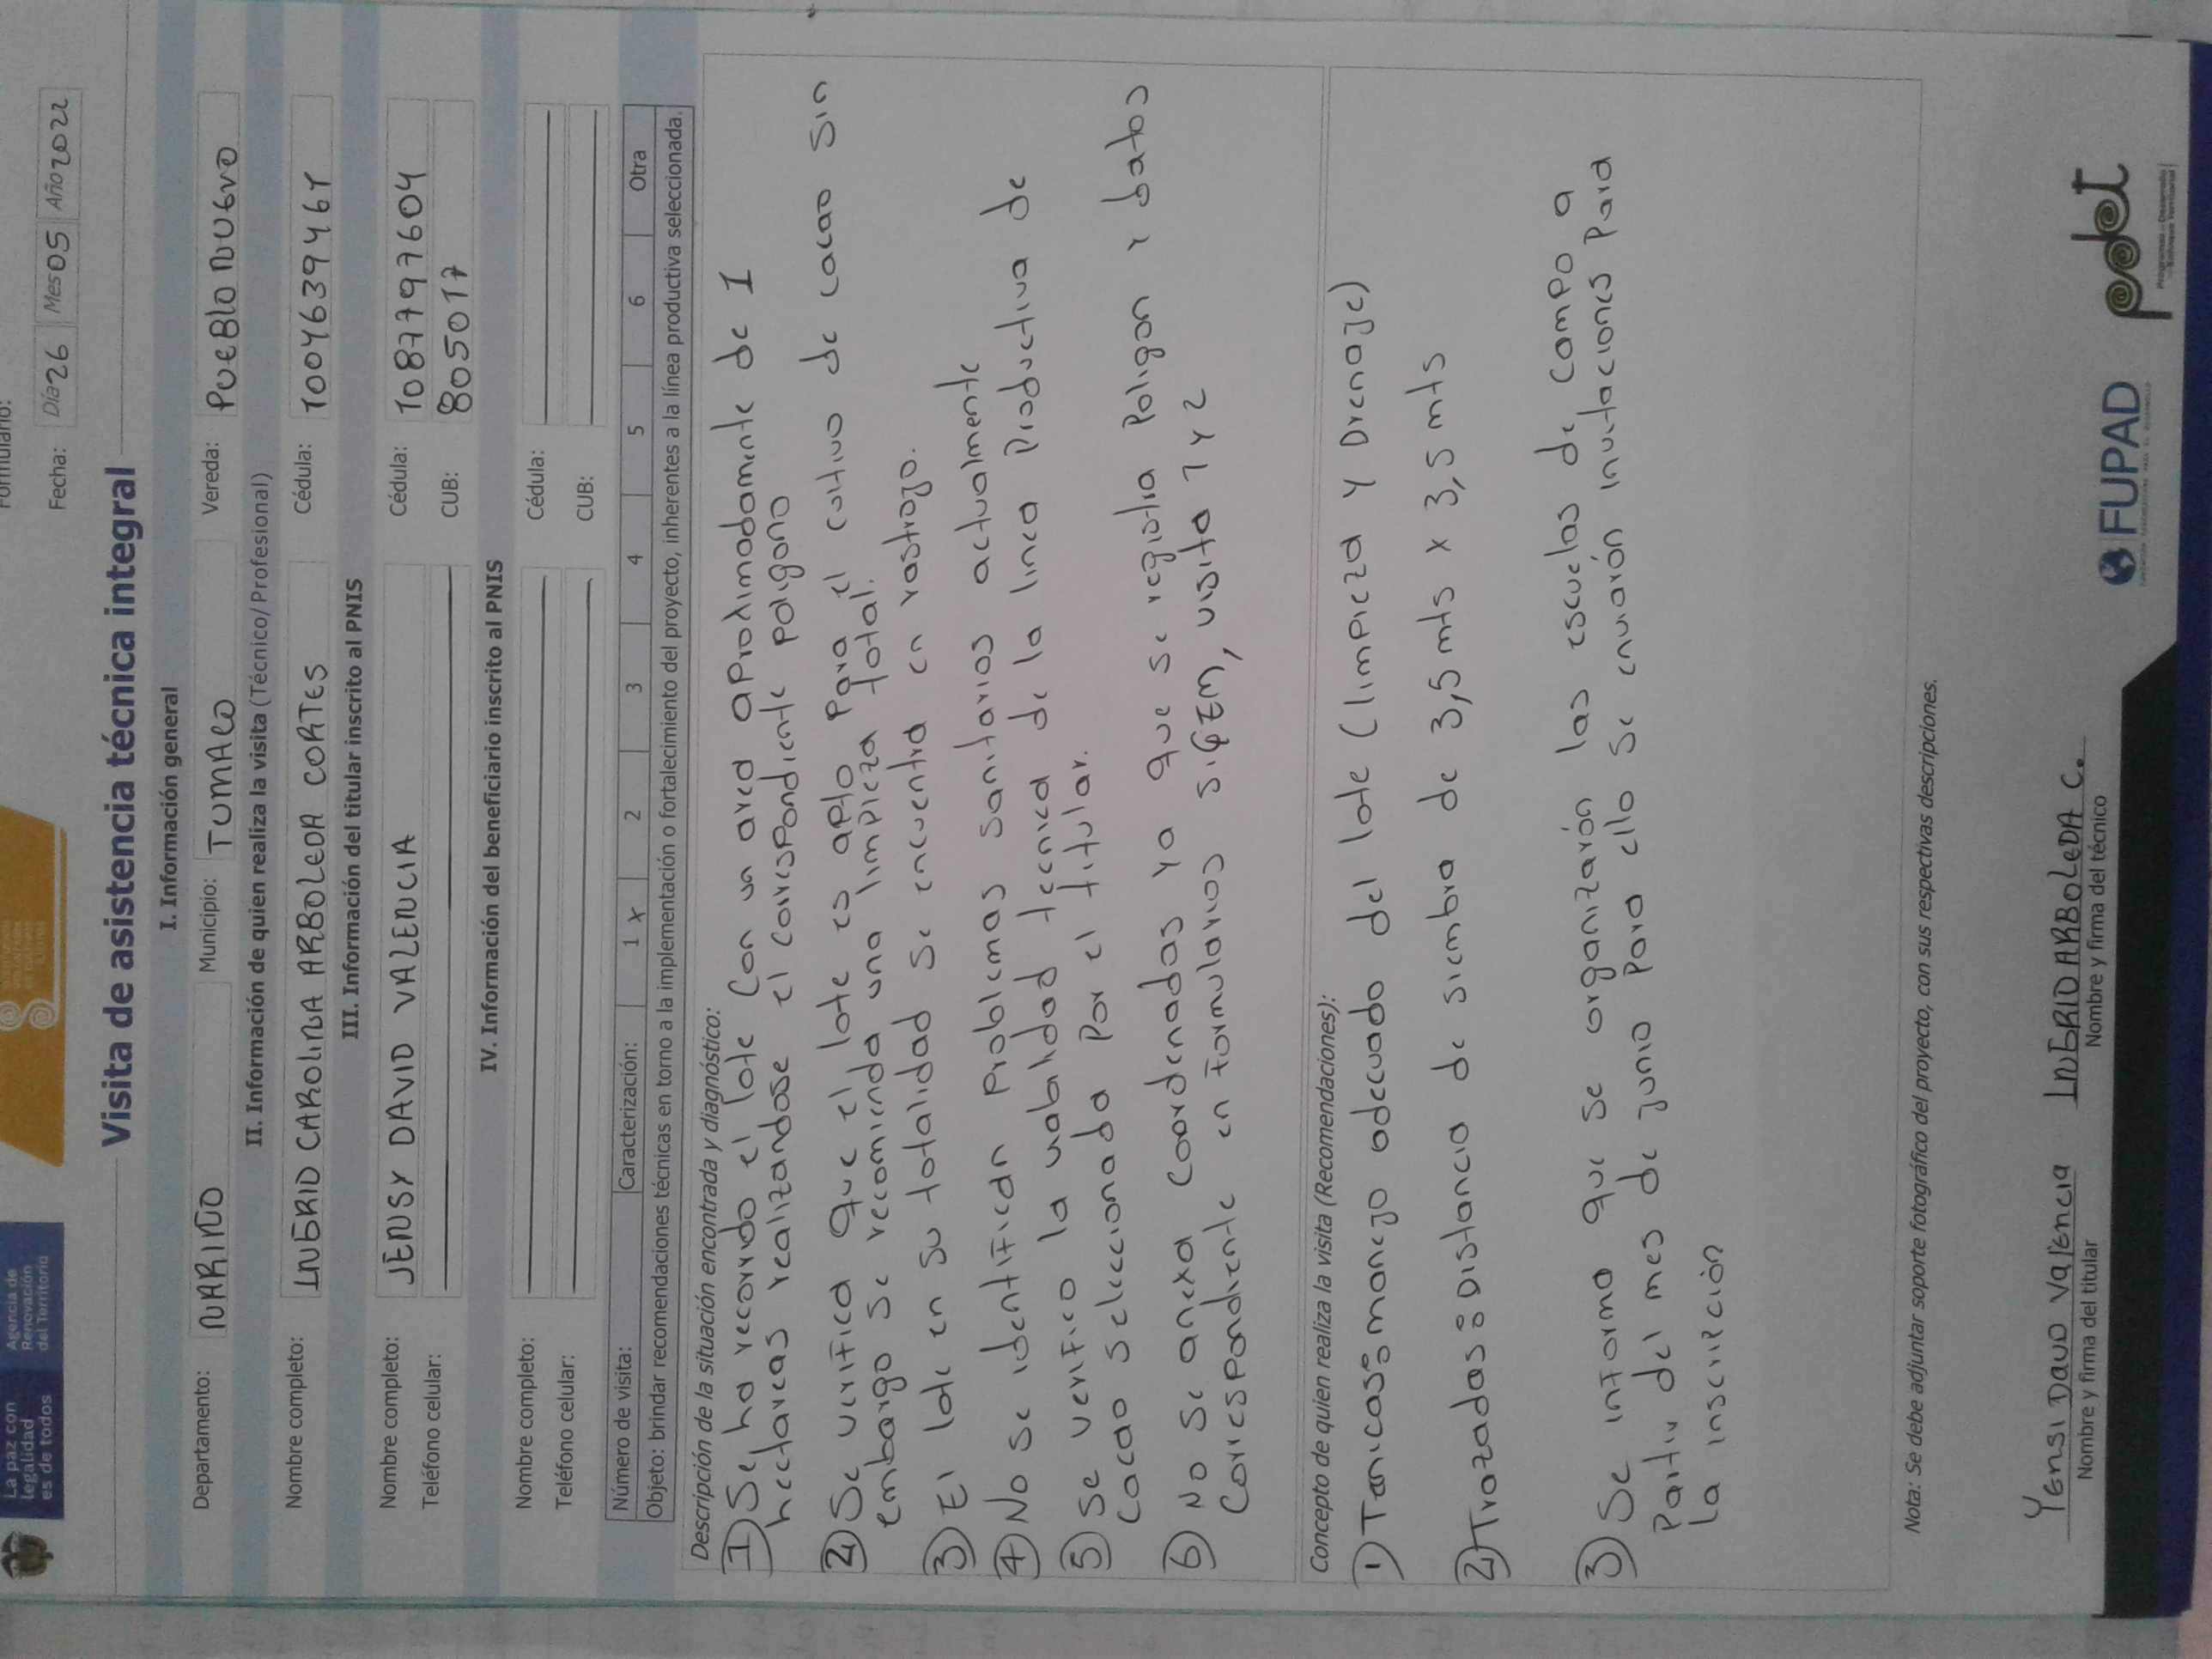 La paz con
legalidad
es de todos
Agencia de
Renovación
del Territorio
Formulario:
Fecha: Día 26 Mes 05 Año 2022
Visita de asistencia técnica integral
I. Información general
Departamento: NARIÑO Municipio: TUMACO Vereda: PUEBLO NUEVO
II. Información de quien realiza la visita (Técnico/ Profesional)
Nombre completo: INGRID CAROLINA ARBOLEDA CORTES Cédula: 1004639461
III. Información del titular inscrito al PNIS
Nombre completo: JENSY DAVID VALENCIA Cédula: 1087797604
Teléfono celular: CUB: 805017
IV. Información del beneficiario inscrito al PNIS
Nombre completo: Cédula:
Teléfono celular: CUB:
Número de visita: Caracterización: 1 x 2 3 4 5 6 Otra
Objeto: brindar recomendaciones técnicas en torno a la implementación o fortalecimiento del proyecto, inherentes a la línea productiva seleccionada.
Descripción de la situación encontrada y diagnóstico:
1) Se ha recorrido el lote con un area aproximadamente de 1
hectareas realizandose el correspondiente poligono
2) Se verifica que el lote es apto para el cultivo de cacao sin
embargo se recomienda una limpieza total.
3) El lote en su totalidad se encuentra en rastrojo.
4) No se identifican problemas sanitarios actualmente
5) se verifico la viabilidad tecnica de la linea productiva de
cacao seleccionada por el titular.
6) No se anexa coordenadas ya que se registra poligon y datos
correspondiente en formularios SIGEM, visita 1 y 2
Concepto de quien realiza la visita (Recomendaciones):
1) Tecnicas: manejo adecuado del lote (limpieza y Drenaje)
2) Trazadas: Distancia de siembra de 3,5 mts x 3,5 mts
3) Se informa que se organizarón las escuelas de campo a
Partir del mes de junio para ello se enviarón invitaciones para
la inscripción
Nota: Se debe adjuntar soporte fotográfico del proyecto, con sus respectivas descripciones.
Yensi David Valencia INGRID ARBOLEDA C.
Nombre y firma del titular Nombre y firma del técnico
FUPAD
pdet